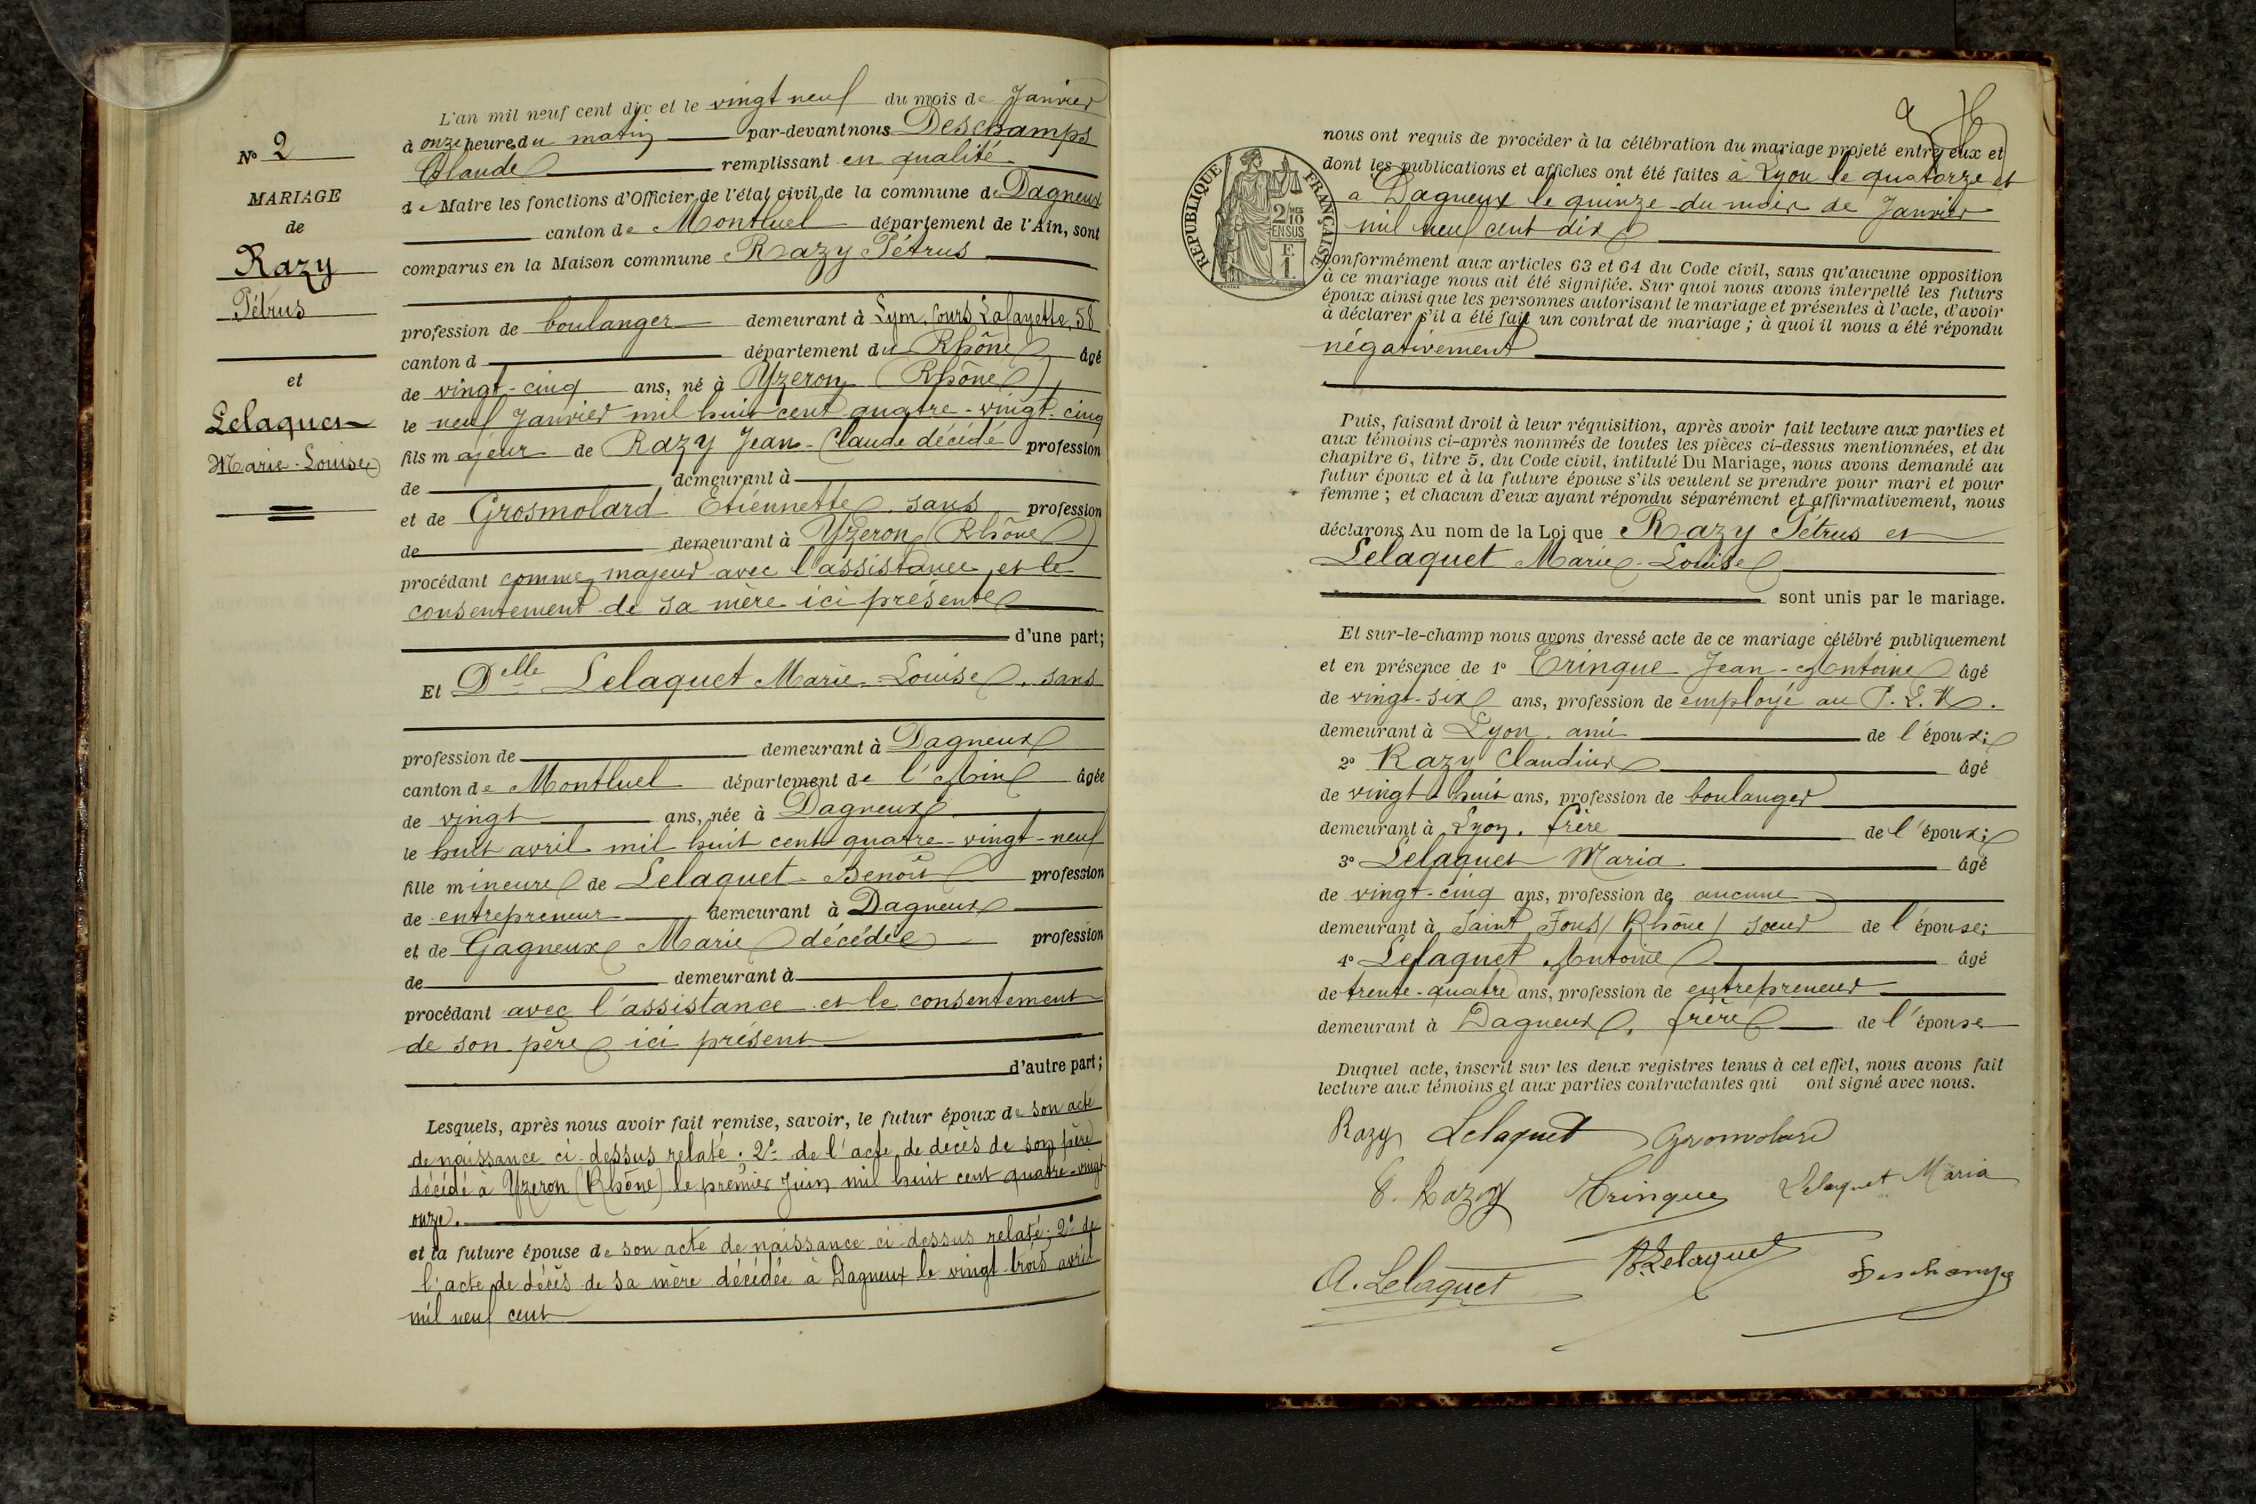 L'an mil neuf cent dix et le vingt neuf du mois de Janvier
à onze heures du matin par-devant nous Deschamps
Claude remplissant en qualité
de Maire les fonctions d'Officier de l'état civil de la commune de Dagneux
canton de Montluel département de l'Ain, sont
comparus en la Maison commune Razy Pétrus
profession de boulanger demeurant à Lyon, Cours Lafayette, 58
canton d département du Rhône âgé
de vingt-cinq ans, né à Yzeron (Rhône)
le neuf Janvier mil huit cent quatre-vingt-cinq
fils majeur de Razy Jean-Claude décédé profession
de demeurant à
et de Grosmolard Etiennette, sans profession
de demeurant à Yzeron (Rhône)
procédant comme majeur avec l'assistance et le
consentement de sa mère ici présente
d'une part;
Et Delle Lelaquet Marie-Louise, sans
profession de demeurant à Dagneux
canton de Montluel département de l'Ain âgée
de vingt ans, née à Dagneux
le huit avril mil huit cent quatre-vingt-neuf
fille mineure de Lelaquet Benoît profession
de entrepreneur demeurant à Dagneux
et de Gagneux Marie décédée profession
de demeurant à
procédant avec l'assistance et le consentement
de son père ici présent
d'autre part;
Lesquels, après nous avoir fait remise, savoir, le futur époux de son acte
de naissance ci-dessus relaté. 2° de l'acte de décès de son père
décédé à Yzeron (Rhône) le premier Juin mil huit cent quatre-vingt
onze.
et la future épouse de son acte de naissance ci-dessus relaté; 2° de
l'acte de décès de sa mère décédée à Dagneux le vingt-trois avril
mil neuf cent
N° 2
MARIAGE
de
Razy
Pétrus
et
Lelaquet
Marie-Louise
nous ont requis de procéder à la célébration du mariage projeté entre eux et
dont les publications et affiches ont été faites à Lyon le quatorze et
a Dagneux le quinze du mois de Janvier
mil neuf cent dix
REPUBLIQUE FRANÇAISE
2/10 EN SUS
F.
1.
conformément aux articles 63 et 64 du Code civil, sans qu'aucune opposition
à ce mariage nous ait été signifiée. Sur quoi nous avons interpellé les futurs
époux ainsi que les personnes autorisant le mariage et présentes à l'acte, d'avoir
à déclarer s'il a été fait un contrat de mariage; à quoi il nous a été répondu
négativement
Puis, faisant droit à leur réquisition, après avoir fait lecture aux parties et
aux témoins ci-après nommés de toutes les pièces ci-dessus mentionnées, et du
chapitre 6, titre 5, du Code civil, intitulé Du Mariage, nous avons demandé au
futur époux et à la future épouse s'ils veulent se prendre pour mari et pour
femme; et chacun d'eux ayant répondu séparément et affirmativement, nous
déclarons Au nom de la Loi que Razy Pétrus et
Lelaquet Marie-Louise
sont unis par le mariage.
Et sur-le-champ nous avons dressé acte de ce mariage célébré publiquement
et en présence de 1° Tringue Jean-Antoine âgé
de vingt-six ans, profession de employé au P. L. M.
demeurant à Lyon, ami de l'époux;
2° Razy Claudius âgé
de vingt-huit ans, profession de boulanger
demeurant à Lyon, frère de l'époux;
3° Lelaquet Maria âgé
de vingt-cinq ans, profession de aucune
demeurant à Saint Fons (Rhône) soeur de l'épouse;
4° Lelaquet Antoine âgé
de trente-quatre ans, profession de entrepreneur
demeurant à Dagneux, frère de l'épouse
Duquel acte, inscrit sur les deux registres tenus à cet effet, nous avons fait
lecture aux témoins et aux parties contractantes qui ont signé avec nous.
Razy Lelaquet Gromolard
C. Razy Tringue Lelaquet Maria
A. Lelaquet B. Lelaquet Deschamps